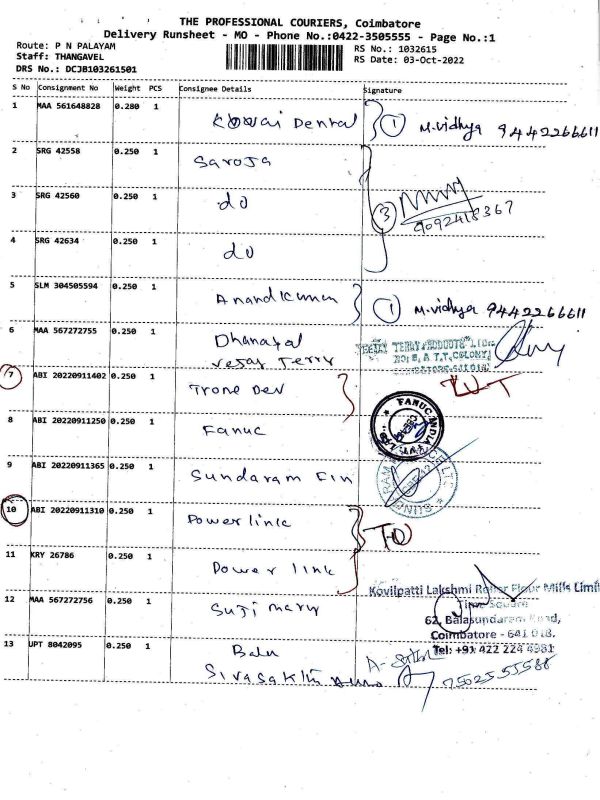 THE PROFESSIONAL COURIERS, Coimbatore
Delivery Runsheet - MO - Phone No.:0422-3505555 - Page No.:1
Route: P N PALAYAM
Staff: THANGAVEL
DRS No.: DCJB103261501
RS No.: 1032615
RS Date: 03-Oct-2022
S No Consignment No Weight PCS Consignee Details Signature
1 MAA 561648828 0.280 1 Kovai Dental 1 M.vidhya 9442266611
2 SRG 42558 0.250 1 Saroja
3 SRG 42560 0.250 1 do 3
4 SRG 42634 0.250 1 do
5 SLM 304505594 0.250 1 Anandkumar 1 M.vidhya 9442266611
6 MAA 567272755 0.250 1 Dhanapal
Terry
7 ABI 20220911402 0.250 1 Trone Dev
8 ABI 20220911250 0.250 1 Fanuc FANUC INDIA
9 ABI 20220911365 0.250 1 Sundaram Fin
10 ABI 20220911310 0.250 1 Power link
11 KRY 26786 0.250 1 Power link
12 MAA 567272756 0.250 1
Kovilpatti Lakshmi Roller Flour Mills Limi
Time Square
62, Balasundaram Road,
Coimbatore - 641 018.
Tel: +91 422 224 4981
13 UPT 8042095 0.250 1 Balu
Sivasakthi